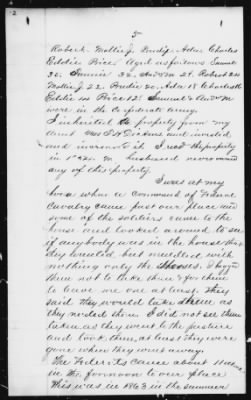 2
3
Robert. Mollie J, Prudie Ada Charles
Eddie Price. Aged as follows Samuel
30. Fannie 32. 28. Robert 24
Mollie J 22. Prudie 20. Ada 18 Charles 16
Eddie 14 Price 12. Samuel &
were in the Confederate Army.
I inherited the property from my
Aunt Mrs and
it. I the property
in my husband never owned
any of this property.
I was at my
house when a command of Federal
Cavalry came past our place and
some of the soldiers came to the
house and looked around to see
if any body was in the house they
they but meddled with
nothing only the I begged
them not to take them & for them
to leave me one at least. They
said they would take them as
they needed them I did not see them
taken as they went to the pasture
and took them, at least they were
gone when they went away.
The Federals came about
in the forenoon to our place
This was in 1863 in the summer